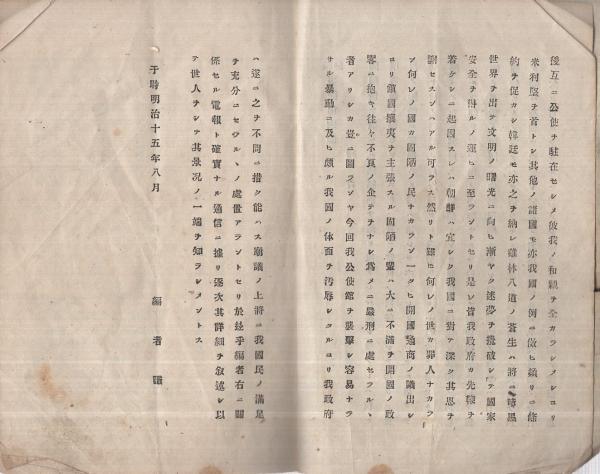 後互ニ公使ヲ駐在セシメ彼我ノ和親ヲ全カラシメシヨリ
米利堅ヲ首トシ其他ノ諸國モ亦我國ノ例ニ倣ヒ頻リニ條
約ヲ促カシ韓廷モ亦之ヲ納レ雞林八道ノ蒼生ハ將ニ暗黑
世界ヲ出テ文明ノ曙光ニ向ヒ漸ヤク迷夢ヲ攪破シテ國家
安全ヲ得ルノ運ヒニ至ラントセリ是レ皆我政府カ先鞭ヲ
著ケシニ起因スレハ朝鮮ハ宜シク我國ニ對ヲ深ク其恩ヲ
謝セスンハアル可ラス然リト雖ヒ何レノ世カ罪人ナカラ
ン何レノ國カ固陋ノ民ナカラン一タヒ開國通商ノ議出レ
ヨリ鎖國攘夷ヲ主張スル固陋ノ輩ハ大ニ不滿ヲ開國ノ政
畧ニ抱キ往々不良ノ企テヲナシ爲メニ嚴刑ニ處セラルヽ
者アリシカ豈ニ圖ランヤ今回我公使館ヲ襲擊シ容易ナラ
サル暴動ニ及ヒ頗ル我國ノ体面ヲ汚辱シタルヨリ我政府
ハ遂ニ之ヲ不問ニ措ク能ハス廟議ノ上將ニ我國民ノ滿足
ヲ充分ニセラルヽノ處置アラントセリ於玆乎編者右ニ關
係セル電報ト確實ナル通信ニ據リ逐次其詳細ヲ叙述シ以
テ世人ヲシテ其景况ノ一端ヲ知ラシメントス
于時明治十五年八月
編者識